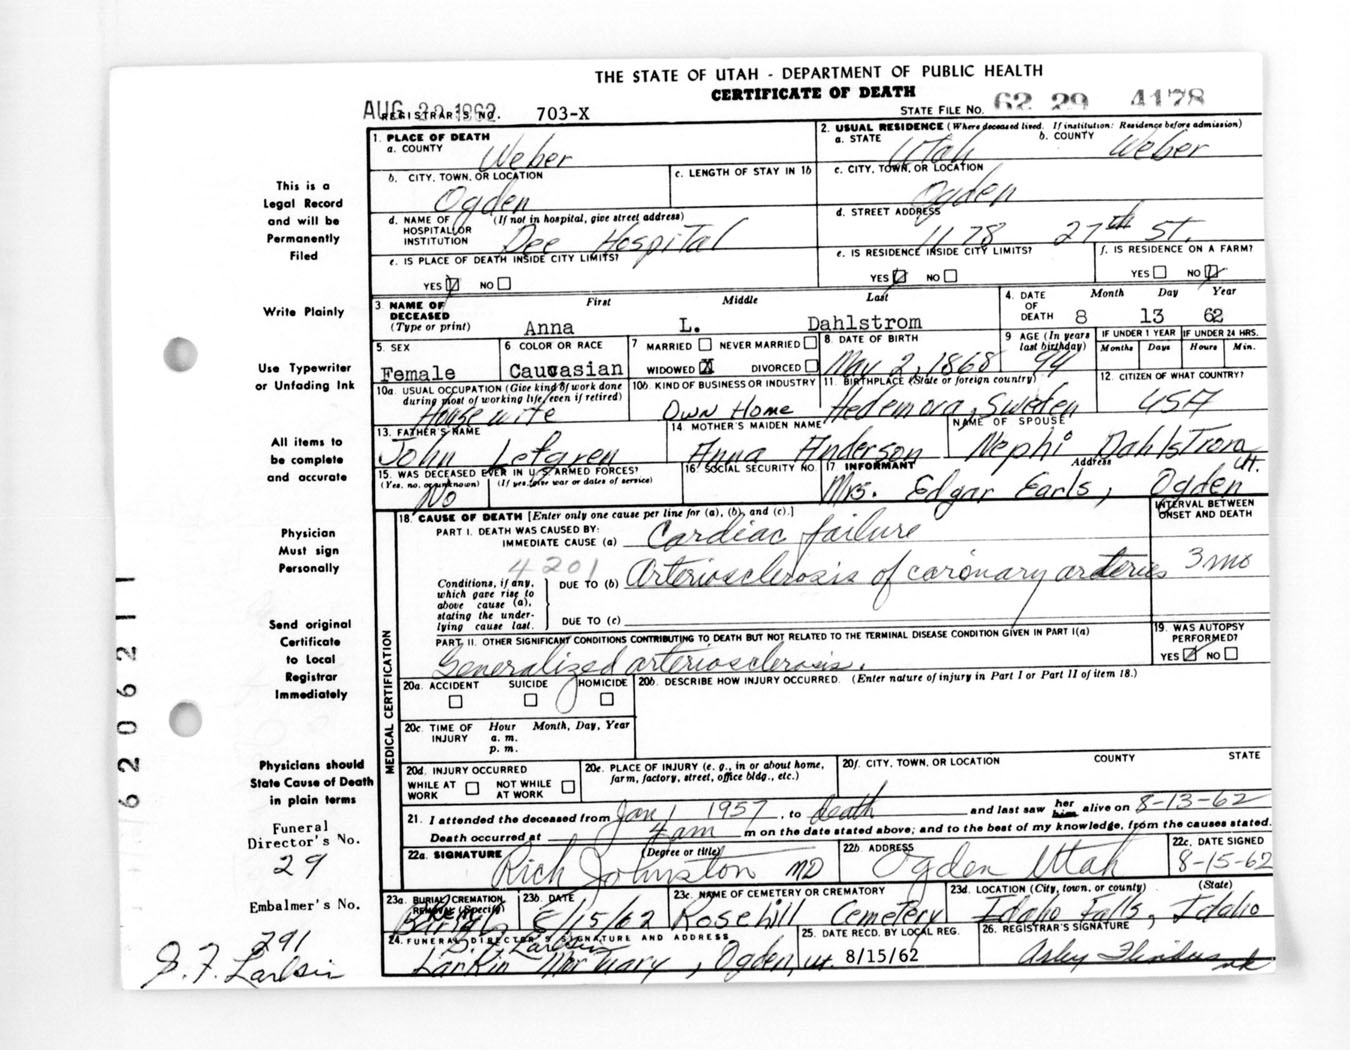 THE STATE OF UTAH - DEPARTMENT OF PUBLIC HEALTH
CERTIFICATE OF DEATH
AUG 20 1962
REGISTRAR'S NO. 703-X
STATE FILE NO. 62 29 4178
This is a
Legal Record
and will be
Permanently
Filed
Write Plainly
Use Typewriter
or Unfading Ink
All items to
be complete
and accurate
Physician
Must sign
Personally
Send original
Certificate
to Local
Registrar
Immediately
Physicians should
State Cause of Death
in plain terms
Funeral
Director's No.
29
Embalmer's No.
291
S. F. Larkin
6206211
1. PLACE OF DEATH
a. COUNTY Weber
b. CITY, TOWN, OR LOCATION Ogden
c. LENGTH OF STAY IN 1b
d. NAME OF HOSPITAL OR INSTITUTION (If not in hospital, give street address) Dee Hospital
e. IS PLACE OF DEATH INSIDE CITY LIMITS?
YES ☑ NO ☐
2. USUAL RESIDENCE (Where deceased lived. If institution: Residence before admission)
a. STATE Utah b. COUNTY Weber
c. CITY, TOWN, OR LOCATION Ogden
d. STREET ADDRESS 1178 27th St.
e. IS RESIDENCE INSIDE CITY LIMITS?
YES ☑ NO ☐
f. IS RESIDENCE ON A FARM?
YES ☐ NO ☑
3. NAME OF DECEASED (Type or print) First Middle Last
Anna L. Dahlstrom
4. DATE OF DEATH Month Day Year
8 13 62
5. SEX Female
6. COLOR OR RACE Caucasian
7. MARRIED ☐ NEVER MARRIED ☐
WIDOWED ☒ DIVORCED ☐
8. DATE OF BIRTH May 2, 1868
9. AGE (In years last birthday) 94
IF UNDER 1 YEAR Months Days
IF UNDER 24 HRS. Hours Min.
10a. USUAL OCCUPATION (Give kind of work done during most of working life, even if retired) Housewife
10b. KIND OF BUSINESS OR INDUSTRY Own Home
11. BIRTHPLACE (State or foreign country) Hedemora, Sweden
12. CITIZEN OF WHAT COUNTRY? USA
13. FATHER'S NAME John Lofgren
14. MOTHER'S MAIDEN NAME Anna Anderson
NAME OF SPOUSE Nephi Dahlstrom
15. WAS DECEASED EVER IN U.S. ARMED FORCES?
(Yes, no, or unknown) (If yes, give war or dates of service)
No
16. SOCIAL SECURITY NO.
17. INFORMANT Address
Mrs. Edgar Earls, Ogden Ut.
MEDICAL CERTIFICATION
18. CAUSE OF DEATH [Enter only one cause per line for (a), (b), and (c).]
INTERVAL BETWEEN ONSET AND DEATH
PART I. DEATH WAS CAUSED BY:
IMMEDIATE CAUSE (a) Cardiac failure
4201
Conditions, if any, which gave rise to above cause (a), stating the underlying cause last.
DUE TO (b) Arteriosclerosis of coronary arteries 3 mo
DUE TO (c)
PART II. OTHER SIGNIFICANT CONDITIONS CONTRIBUTING TO DEATH BUT NOT RELATED TO THE TERMINAL DISEASE CONDITION GIVEN IN PART I(a)
Generalized arteriosclerosis.
19. WAS AUTOPSY PERFORMED?
YES ☑ NO ☐
20a. ACCIDENT SUICIDE HOMICIDE
☐ ☐ ☐
20b. DESCRIBE HOW INJURY OCCURRED. (Enter nature of injury in Part I or Part II of item 18.)
20c. TIME OF INJURY Hour Month, Day, Year
a. m.
p. m.
20d. INJURY OCCURRED
WHILE AT WORK ☐ NOT WHILE AT WORK ☐
20e. PLACE OF INJURY (e. g., in or about home, farm, factory, street, office bldg., etc.)
20f. CITY, TOWN, OR LOCATION COUNTY STATE
21. I attended the deceased from Jan 1 1957, to death and last saw her him alive on 8-13-62
Death occurred at 4 am m on the date stated above; and to the best of my knowledge, from the causes stated.
22a. SIGNATURE (Degree or title) Rich Johnston MD
22b. ADDRESS Ogden Utah
22c. DATE SIGNED 8-15-62
23a. BURIAL, CREMATION, REMOVAL (Specify) Burial
23b. DATE 8/15/62
23c. NAME OF CEMETERY OR CREMATORY Rosehill Cemetery
23d. LOCATION (City, town, or county) (State) Idaho Falls, Idaho
24. FUNERAL DIRECTOR'S SIGNATURE AND ADDRESS
S. F. Larkin
Larkin Mortuary, Ogden, Ut.
25. DATE RECD. BY LOCAL REG. 8/15/62
26. REGISTRAR'S SIGNATURE